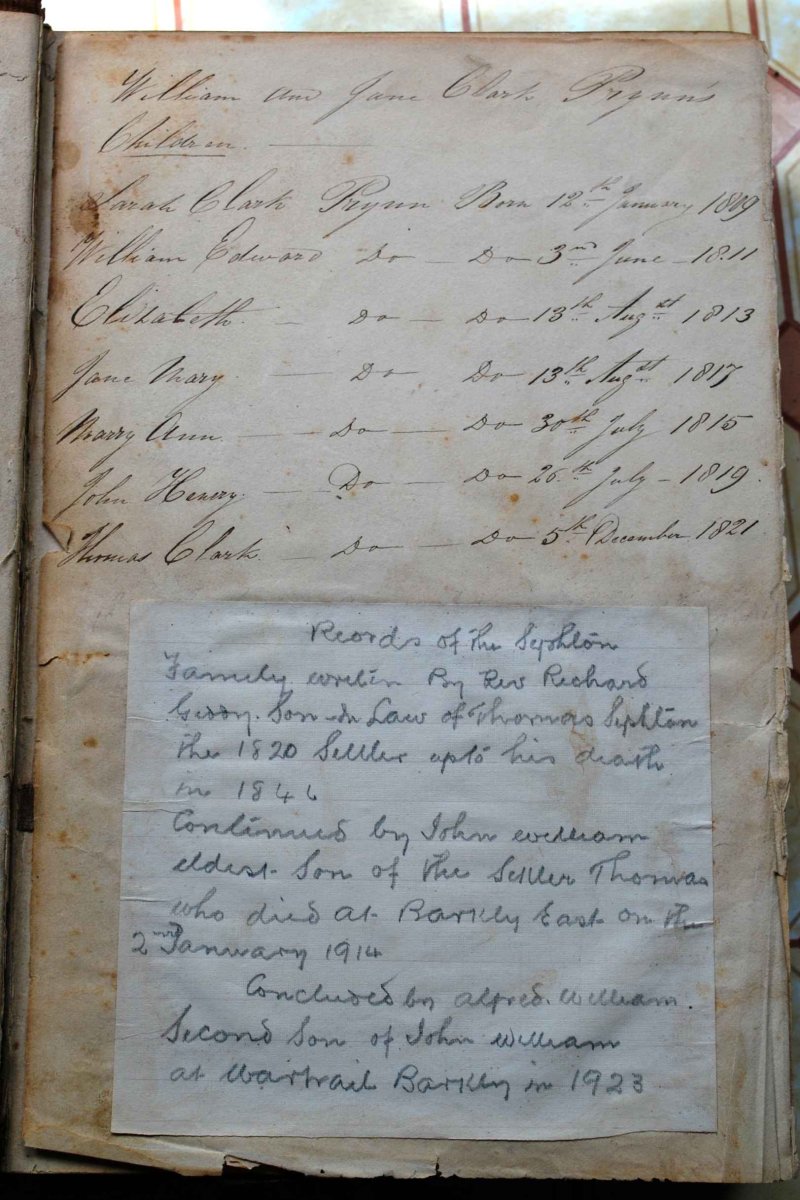 William and Jane Clark Prynn's
Children.
Sarah Clark Prynn Born 12th January 1809
William Edward Do Do 3rd June 1811
Elizabeth Do Do 13th Augst 1813
Jane Mary Do Do 13th Augst 1817
Marry Ann Do Do 30th July 1815
John Henery Do Do 26th July 1819.
Thomas Clark Do Do 5th December 1821
Records of the Sephton
Family writin By Rev Richard
Giddy. Son in Law of Thomas Sephton
the 1820 Settler upto his death
in
Continued by John william
eldest Son of the Settler Thomas
who died at Barkly East on the
2nd January 1914
Concluded by Alfred William.
Second Son of John William
at Wartrail Barkly in 1923